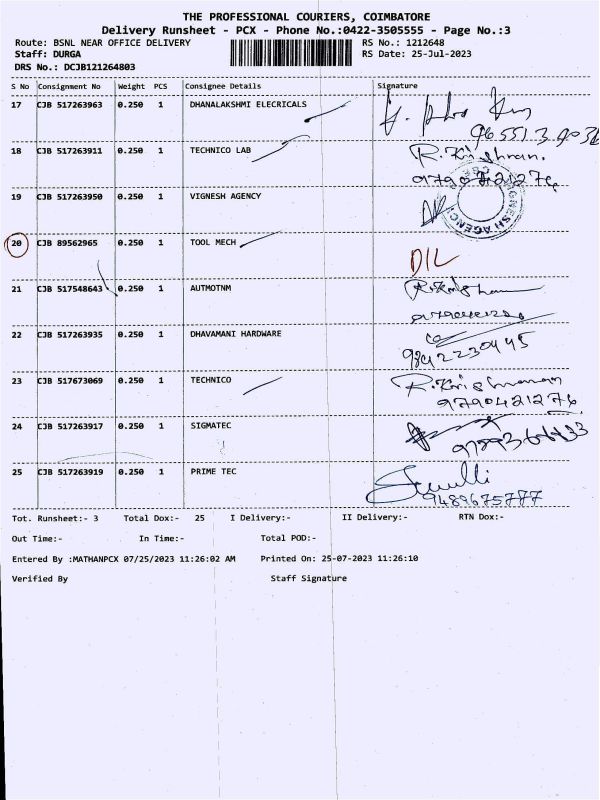 THE PROFESSIONAL COURIERS, COIMBATORE
Delivery Runsheet - PCX - Phone No.:0422-3505555 - Page No.:3
Route: BSNL NEAR OFFICE DELIVERY RS No.: 1212648
Staff: DURGA RS Date: 25-Jul-2023
DRS No.: DCJB121264803
S No Consignment No Weight PCS Consignee Details Signature
17 CJB 517263963 0.250 1 DHANALAKSHMI ELECRICALS
18 CJB 517263911 0.250 1 TECHNICO LAB R. Krishnan.
9790421276
19 CJB 517263950 0.250 1 VIGNESH AGENCY
20 CJB 89562965 0.250 1 TOOL MECH DIL
21 CJB 517548643 0.250 1 AUTMOTNM
22 CJB 517263935 0.250 1 DHAVAMANI HARDWARE
9842230445
23 CJB 517673069 0.250 1 TECHNICO R. Krishnan
9790421276
24 CJB 517263917 0.250 1 SIGMATEC
25 CJB 517263919 0.250 1 PRIME TEC
9489675777
Tot. Runsheet:- 3 Total Dox:- 25 I Delivery:- II Delivery:- RTN Dox:-
Out Time:- In Time:- Total POD:-
Entered By :MATHANPCX 07/25/2023 11:26:02 AM Printed On: 25-07-2023 11:26:10
Verified By Staff Signature